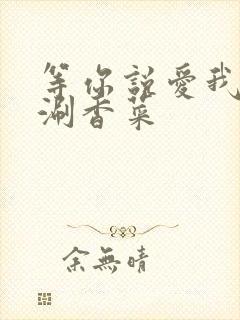 等你說愛我
涮香菜
余無晴